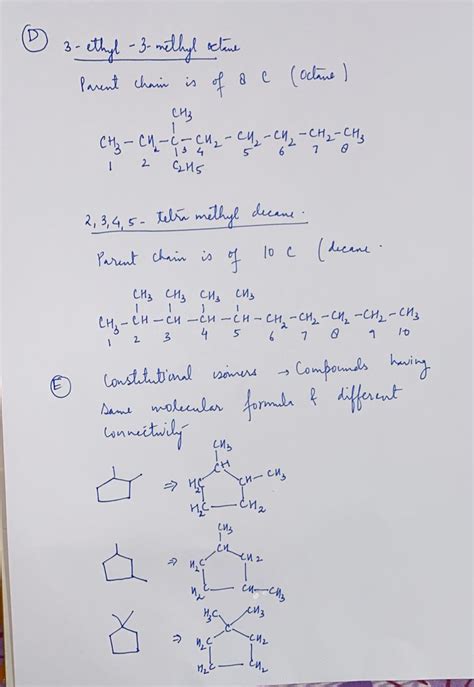 D
3-ethyl-3-methyl octane
Parent chain is of 8 C (octane)
CH3
CH3-CH2-C-CH2-CH2-CH2-CH2-CH3
1 2 3 4 5 6 7 8
C2H5
2,3,4,5-tetra methyl decane.
Parent chain is of 10 C (decane.
CH3 CH3 CH3 CH3
CH3-CH-CH-CH-CH-CH2-CH2-CH2-CH2-CH3
1 2 3 4 5 6 7 8 9 10
E
Constitutional isomers → Compounds having
same molecular formula & different
connectivity
CH3
CH
⇒ H2C CH-CH3
H2C-CH2
CH3
CH
⇒ H2C CH2
H2C-CH-CH3
H3C CH3
C
⇒ H2C CH2
H2C-CH2